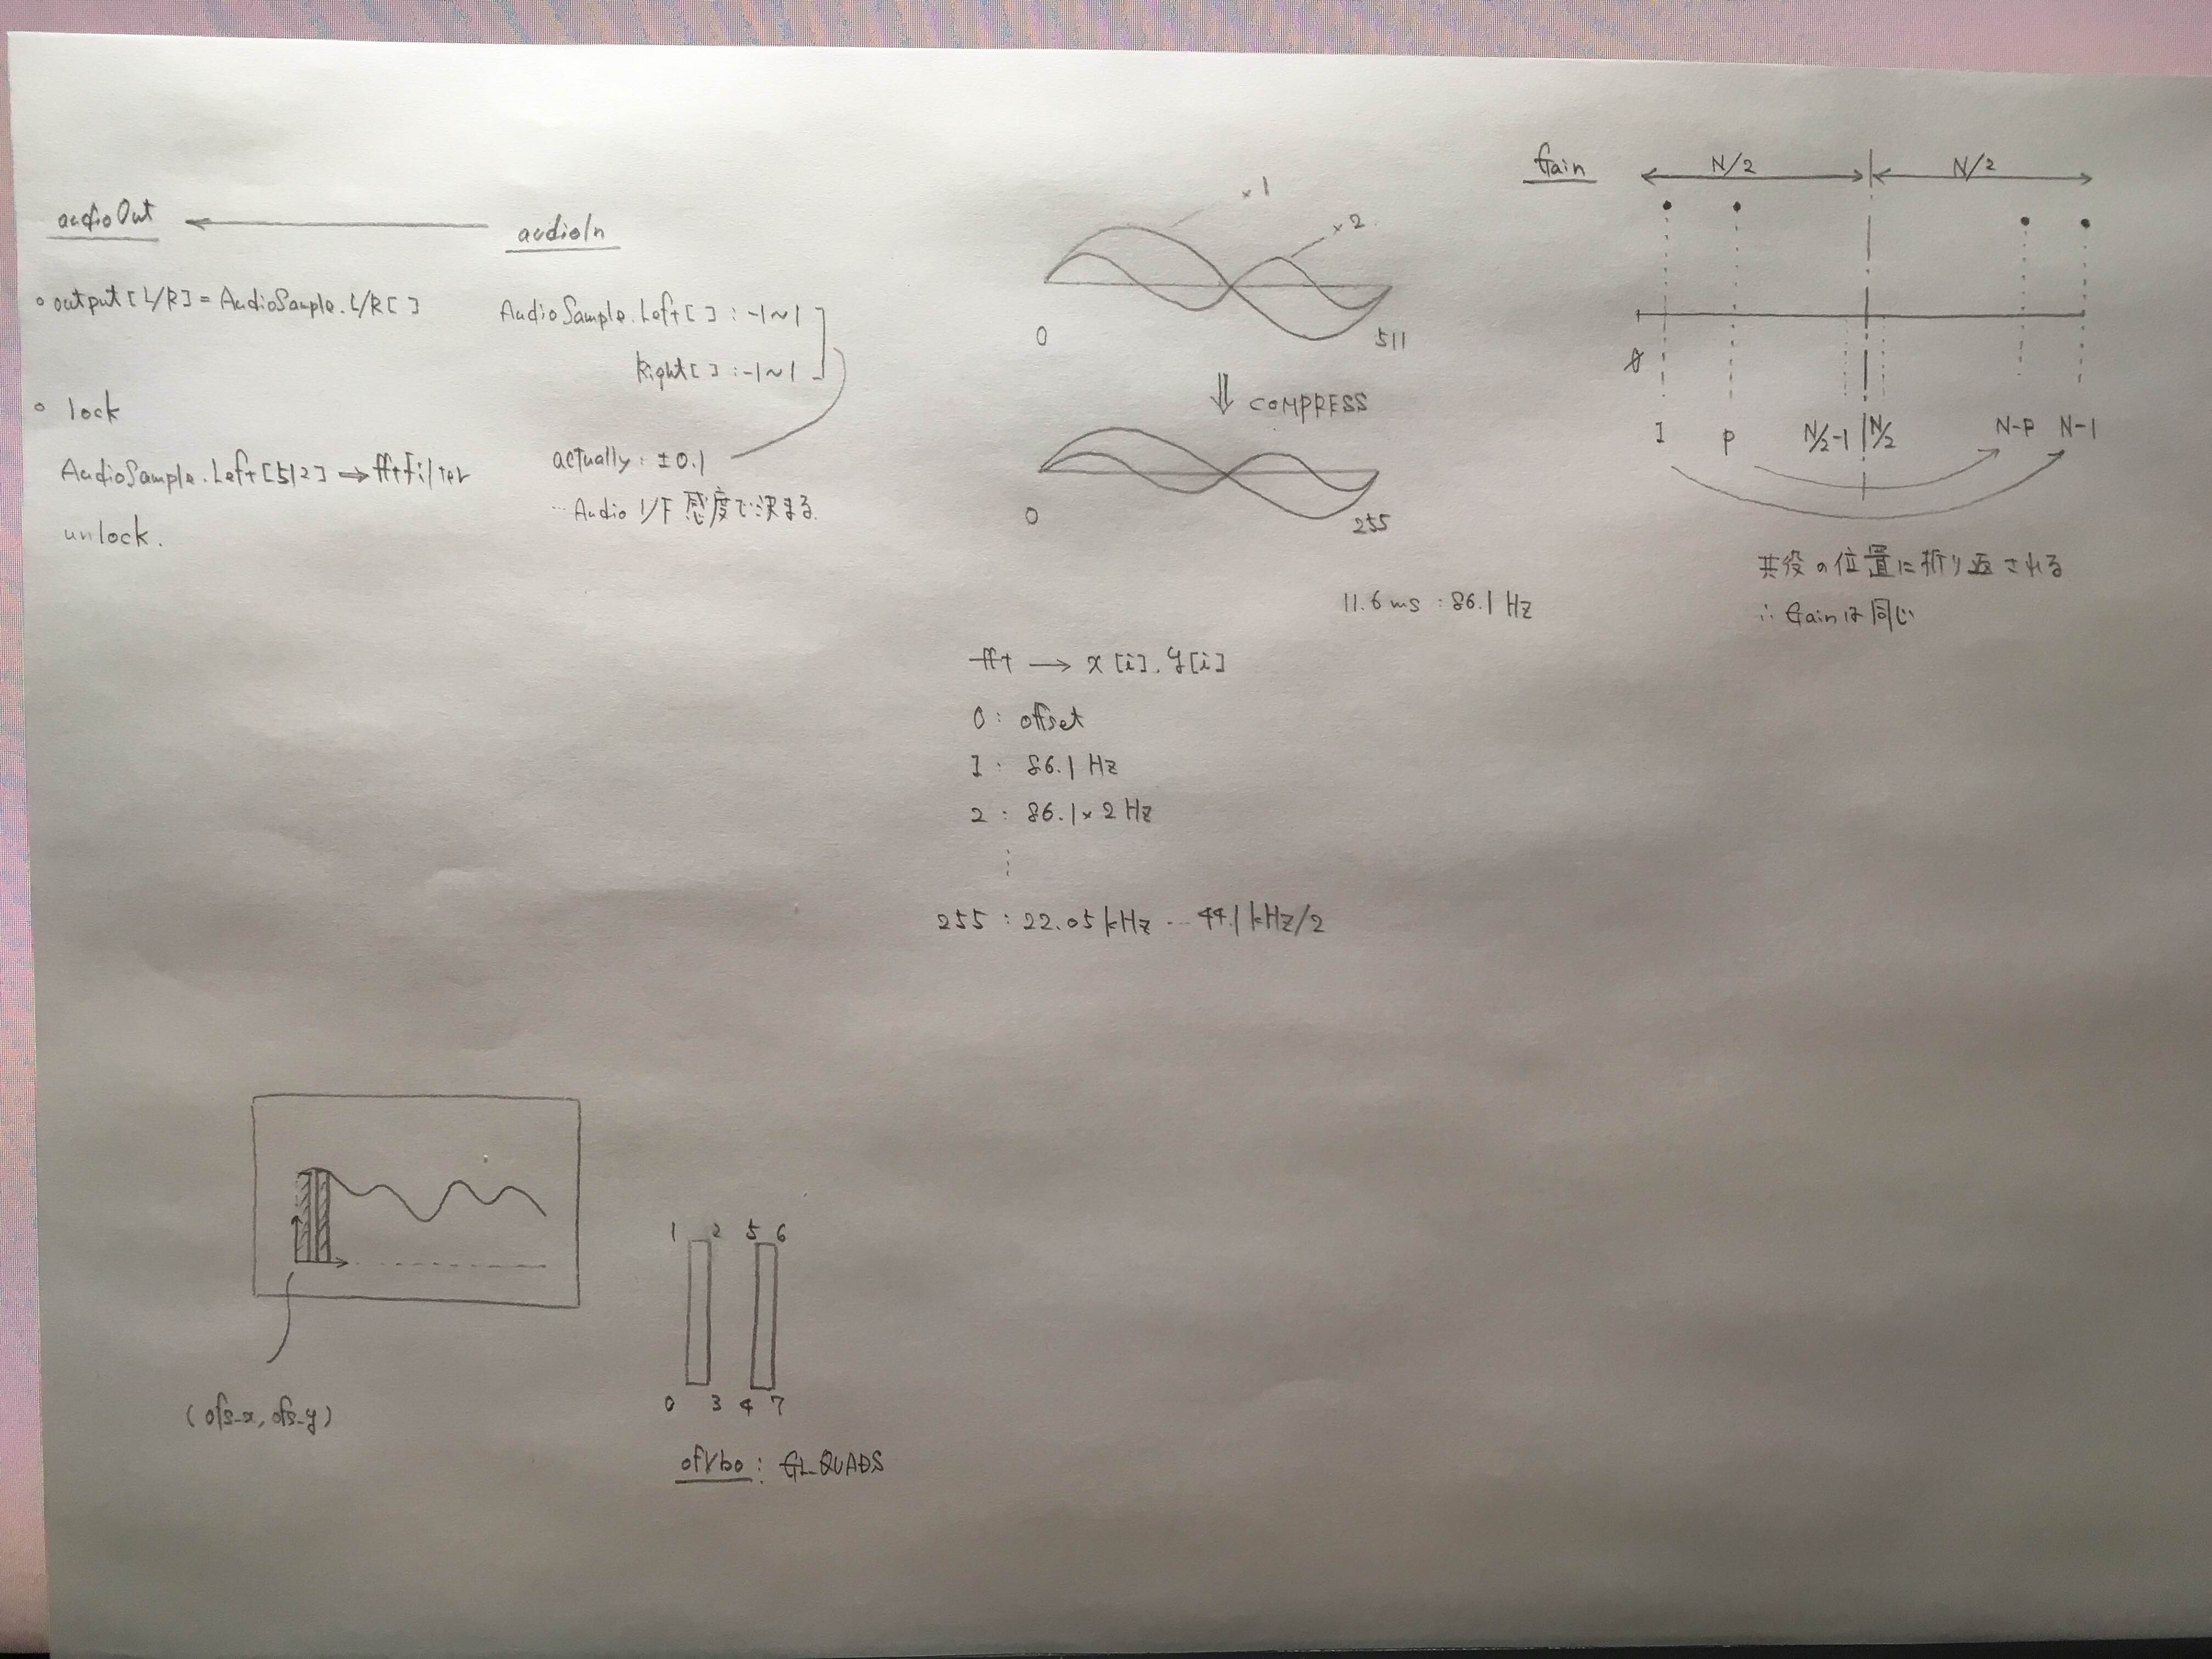 audioOut
audioIn
○ output[L/R] = AudioSample.L/R[ ]
AudioSample.Left[ ] : -1~1
Right[ ] : -1~1
○ lock
AudioSample.Left[512] → fftFilter
unlock.
actually : ±0.1
… Audio I/F 感度で決まる.
×1
×2
0
511
⇓ COMPRESS
0
255
11.6ms : 86.1Hz
fft → x[i], y[i]
0 : offset
1 : 86.1 Hz
2 : 86.1×2 Hz
⋮
255 : 22.05kHz … 44.1kHz/2
Gain
N/2
N/2
0
1
P
N/2-1
N/2
N-P
N-1
共役の位置に折り返される
∴ Gainは同じ
(ofs_x, ofs_y)
1 2 5 6
0 3 4 7
ofVbo : GL_QUADS